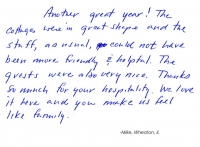 Another great year! The
cottages were in great shape and the
staff, as usual, could not have
been more friendly & helpful. The
guests were also very nice. Thanks
so much for your hospitality. We love
it here and you make us feel
like family.
-Mike, Wheaton, IL